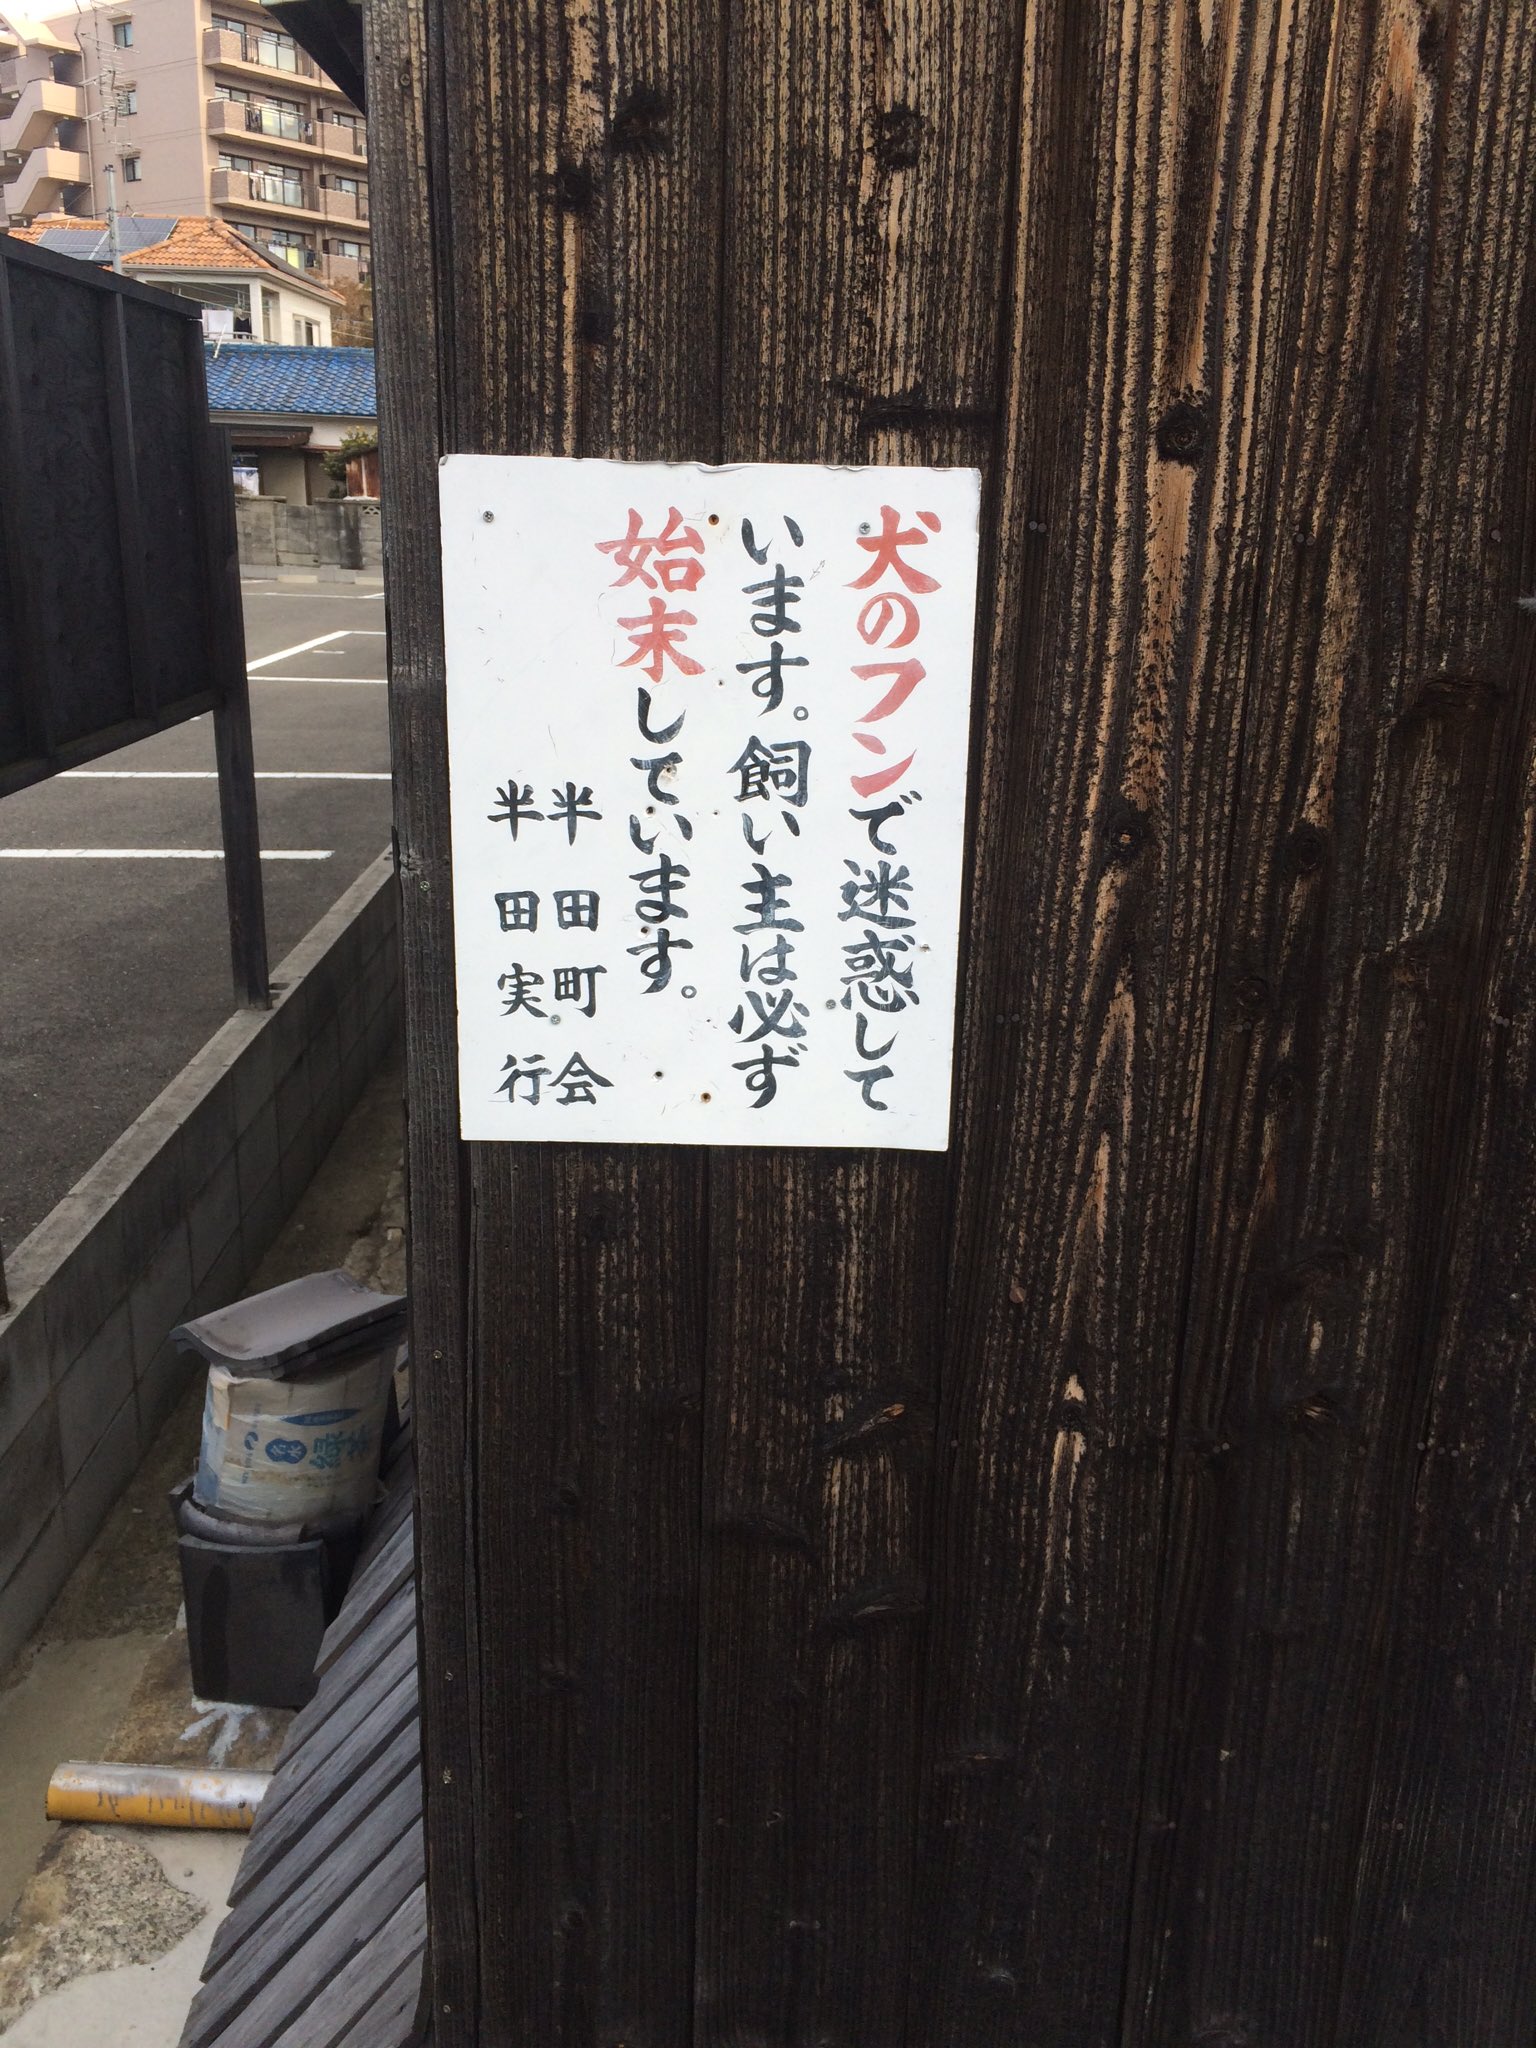 犬のフンで迷惑して
います。飼い主は必ず
始末しています。
半田町会
半田実行
緑